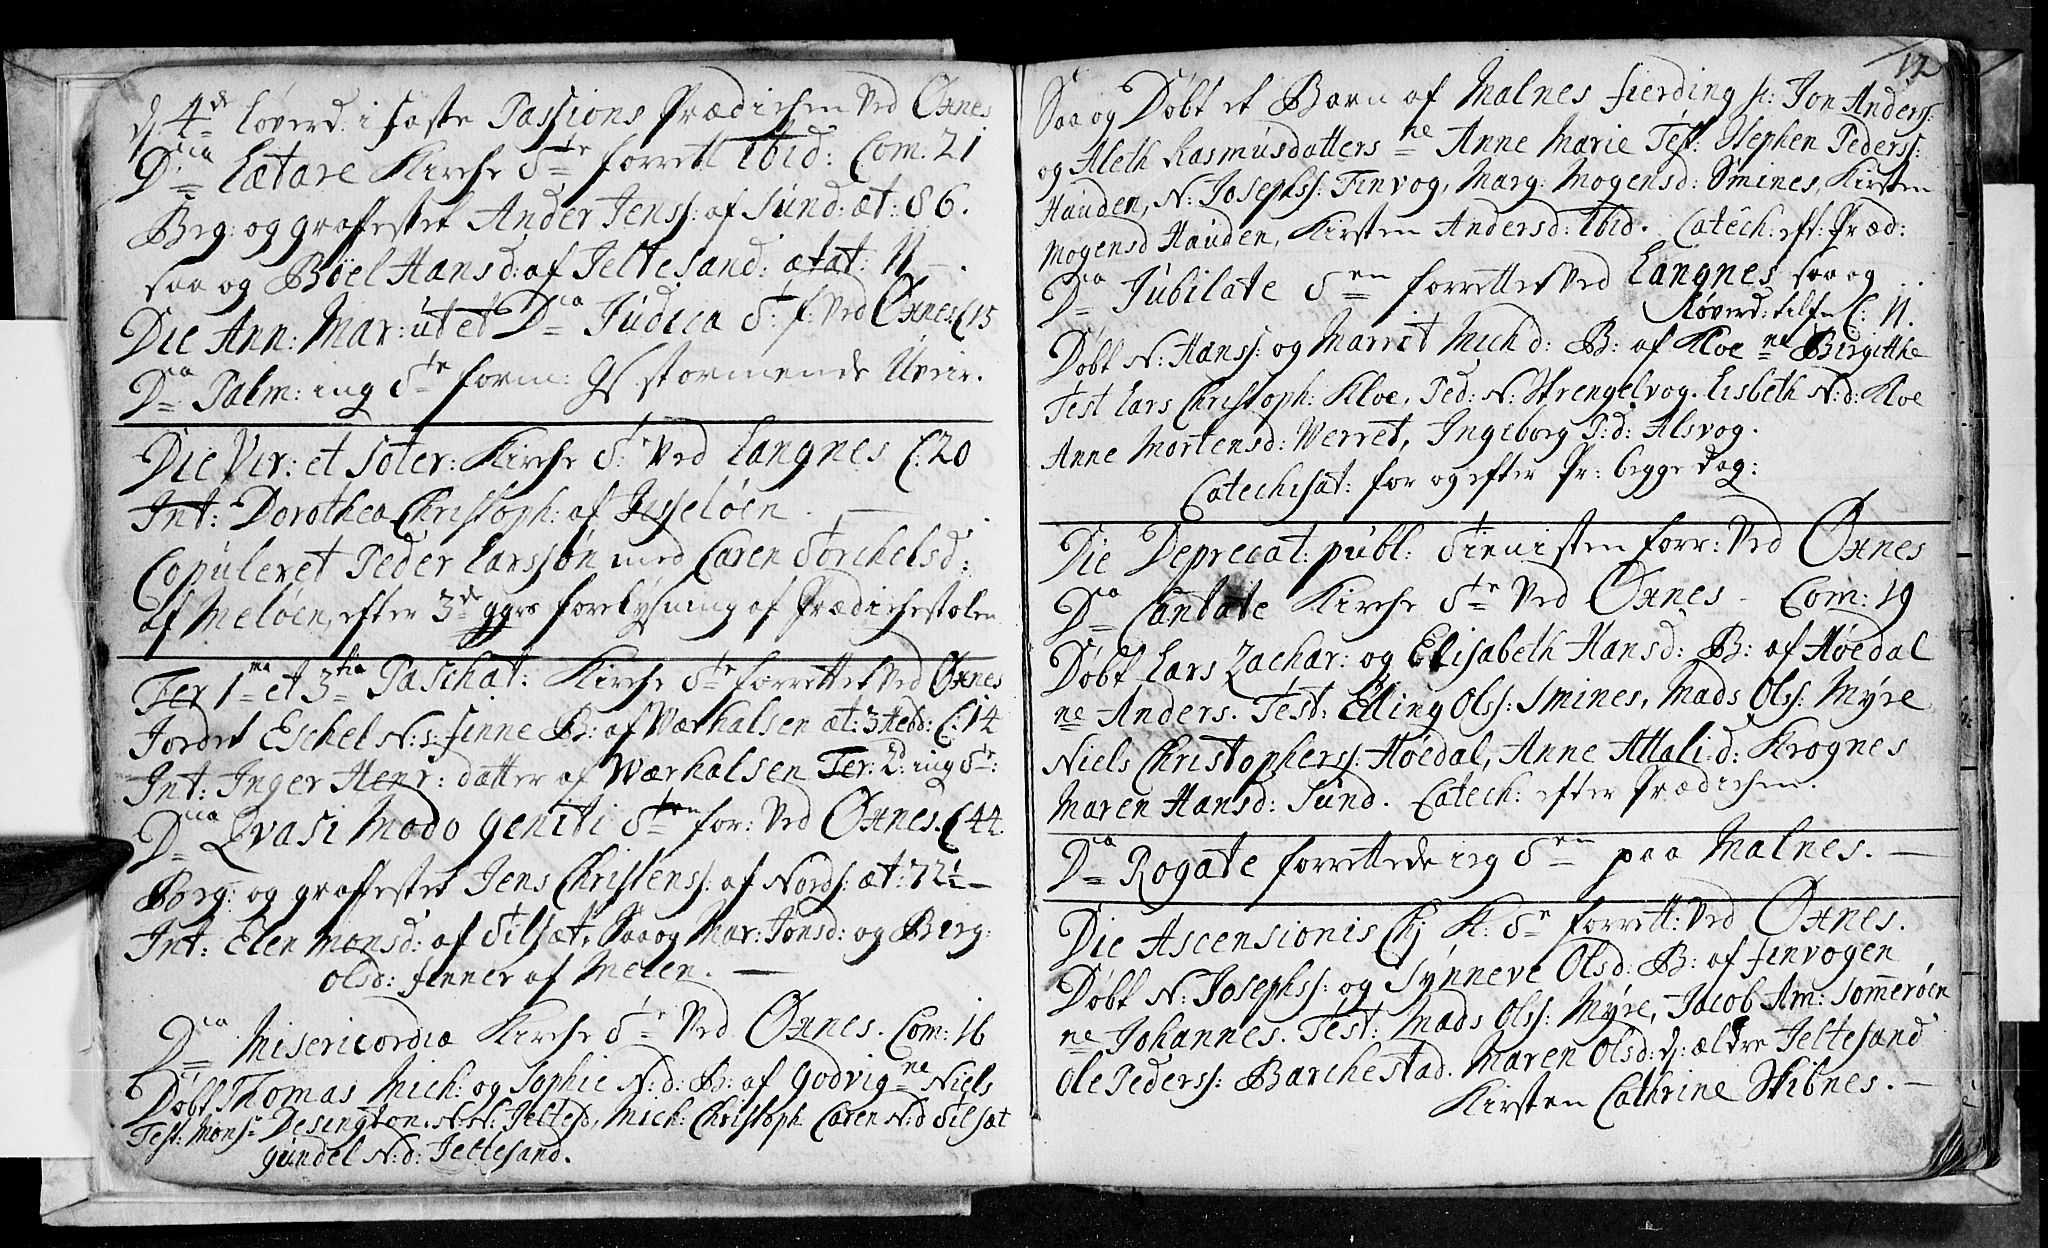 d 4de Løverd: i faste Passions Prædichen Ved Øxnes
Dnica Lætare Kirche Ste forrett ibid: Com: 21
Beg: og graffestet Ander Jenss: af Sund: æt: 86.
saa og Böel Hansd: af Jeltesand: ætat: 11 –.
Die Ann: Mar: ut et Dca Judica St: f: Ved Øxnes: C 15
Dca Palm: ing Ste form: stormende Uveir.
Die Vir: et Soter: Kirche St: Ved Langnes C: 20
Int: Dorothea Christoph: af Jesseløen. —
Copuleret Peder Larssøn med Caren Storchelsd:
af Meløen, efter 3de ggrs forelysning af Prædichestolen
Fer 1ma et 3tia Paschat: Kirche Ste forrettet Ved Øxnes
Jordet Eschel N:s: finne B: af Wærhalsen æt: 3 Hebd: C: 14
Int: Inger Henr: datter af Wærhalsen Fer: 2: ing St:
Dnica Qvasi Modo Geniti Sten for: Ved Øxnes. C 44.
Berg: og graffestet Jens Christens: af Nords: æt: 72½ –
Int: Elen Monsd: af Tilsæt, Saa og Mar: Jonsd: og Birg:
Olsd: finner af Melen. —
Dca Misericordiæ Kirche Ste Ved Øxnes. Com: 16
Døbt Thomas Mich: og Sophie N:d: B: af Godvig ne Niels
Test: Monsr Desington, N: N: Jeltes, Mich: Christoph Caren N:d Tilsæt
Gundel N:d: Jeltesand.
12
Saa og Døbt et Barn af Malnes fierding f: Jon Anderss:
og Aleth Rasmusdatters ne Anne Marie Test: Stephen Pederss:
Hauden, N: Josephss: Finvog, Marg: Mogensd: Smines, Kirsten
Mogensd Hauden, Kirsten Andersd: ibid. Catech: eft: Præd:
Dca Jubilate Sen forrettet Ved Langnes saa og
Løverd: tilfn C: 11.
Døbt N: Hanss: og Marrit Mich d: B: af Kloe ne Birgitthe
Test Lars Christoph: Kloe, Ped: N: Strengelvog. Lisbeth N:d: Kloe
Anne Mortensd: Werret, Ingeborg P:d: Alsvog.
Catechisat: for og efter Pr: begge dag:
Die Deprecat: publ: Tienisten forr: Ved Øxnes
Dca Cantate Kirche Ste Ved Øxnes – Com: 19
Døbt Lars Zachar: og Elisabeth Hansd: B: af Høedal
ne Anders. Test: Elling Olss: Smines, Mads Olss: Myre
Niels Christopherss: Høedal, Anne Attali:d: Krognes
Maren Hansd: Sund. Catech: efter Prædichen.
Dca Rogate forrettede ieg Sen paa Malnes. —
Die Ascensionis Chj K: Sn forrett: Ved Øxnes.
Døbt N: Josephss: og Synneve Olsd: B: af finvogen
ne Johannes. Test: Mads Olss: Myre, Jacob Am: Sommerøen
Ole Pederss: Barchestad. Maren Olsd: d: ældre Jeltesand
Kirsten Cathrine Skibnes. —